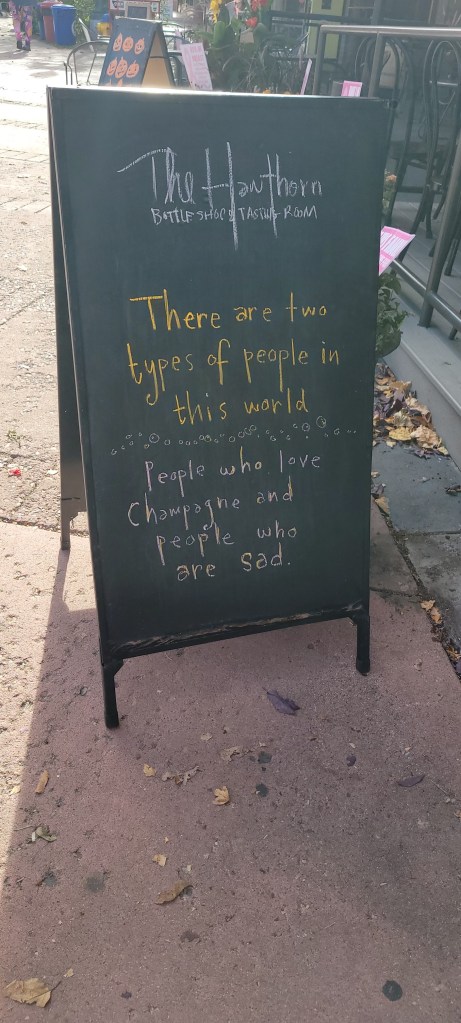 The Hawthorn
BOTTLE SHOP & TASTING ROOM
There are two
types of people in
this world
People who love
Champagne and
people who
are sad.